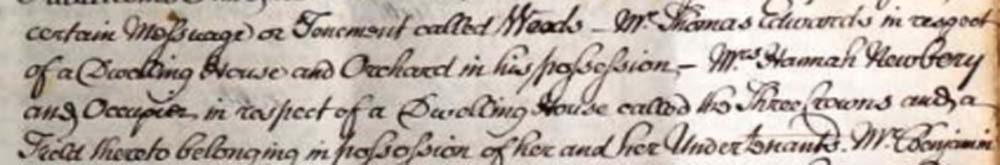 certain Messuage or Tenement called Woods – Mr. Thomas Edwards in respect
of a Dwelling House and Orchard in his possession, – Mrs. Hannah Newbery
and Occupier in respect of a Dwelling House called the Three Crowns and a
Field thereto belonging in possession of her and her Under tenants. Mr. Benjamin